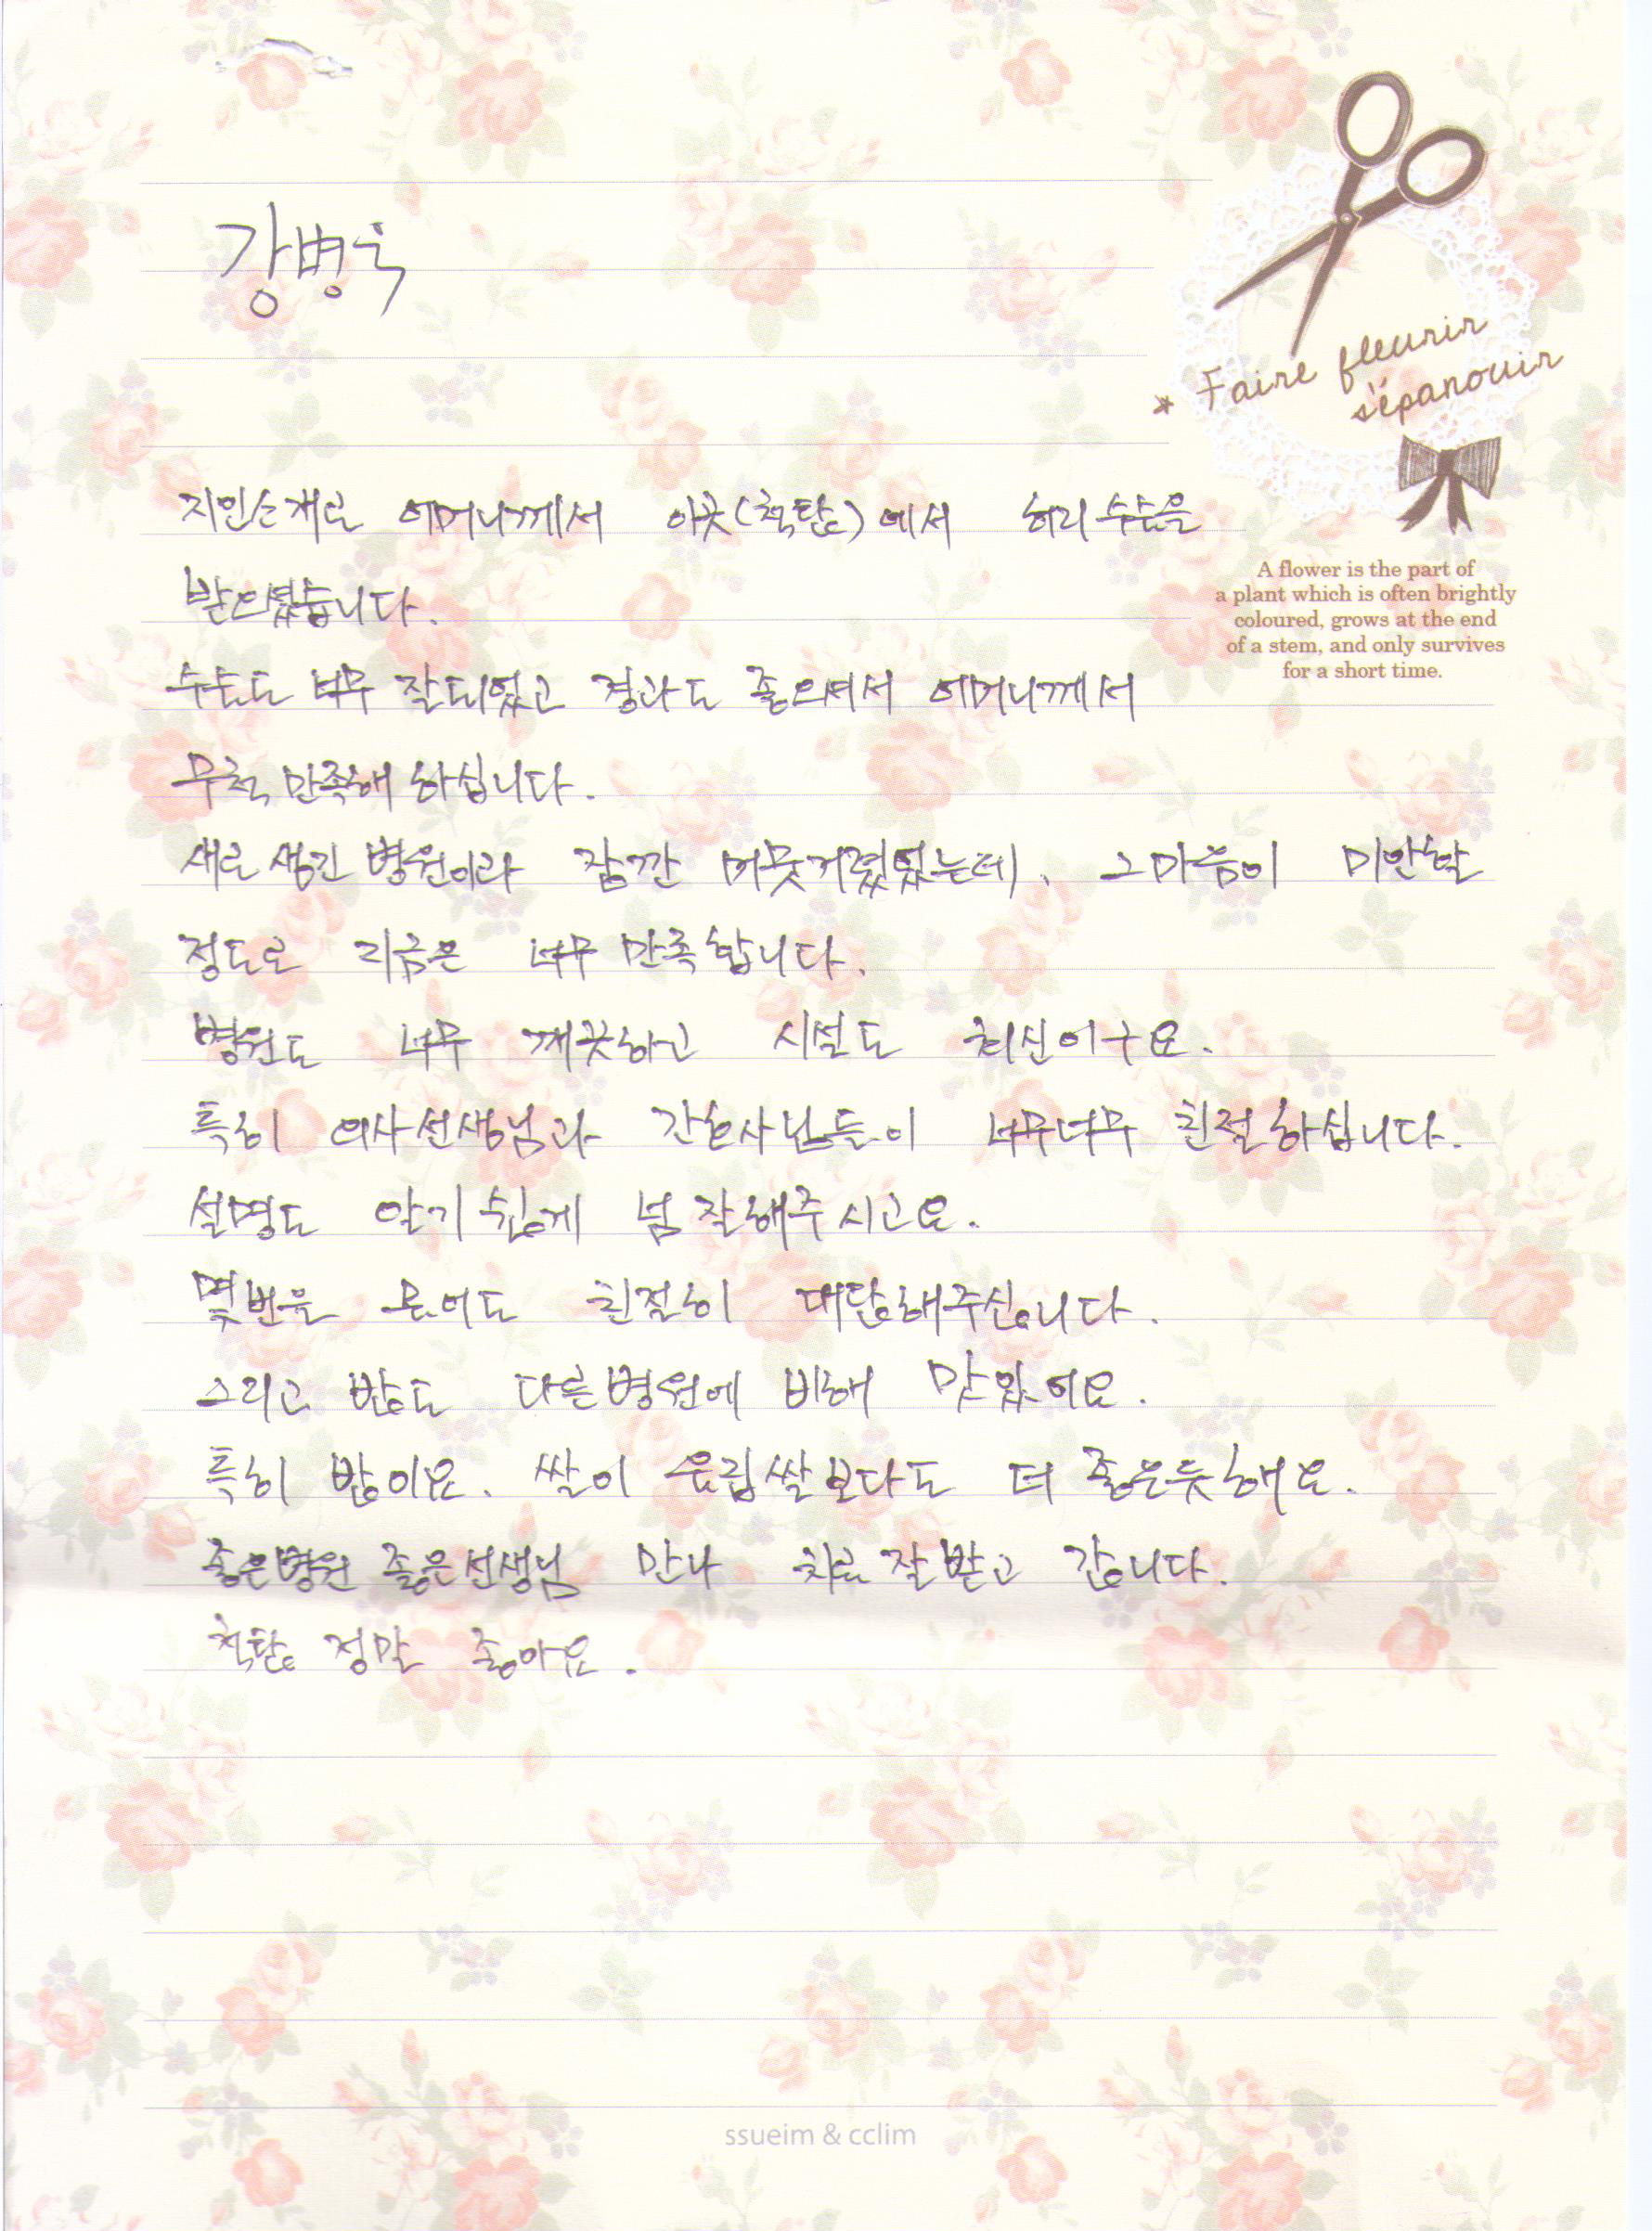 강병욱
* Faire fleurir
s'épanouir
지인소개로 어머니께서 이곳(척탑)에서 허리수술을
받으셨습니다.
A flower is the part of
a plant which is often brightly
coloured, grows at the end
of a stem, and only survives
for a short time.
수술도 너무 잘되었고 경과도 좋으셔서 어머니께서
무척 만족해 하십니다.
새로생긴 병원이라 잠깐 머뭇거렸었는데, 그마음이 미안할
정도로 지금은 너무 만족합니다.
병원도 너무 깨끗하고 시설도 최신이구요.
특히 의사선생님과 간호사님들이 너무너무 친절하십니다.
설명도 알기쉽게 넘 잘해주시고요.
몇번을 물어도 친절히 대답해주십니다.
그리고 밥도 다른병원에 비해 맛있어요.
특히 밥이요. 쌀이 유립쌀보다도 더 좋은듯해요.
좋은병원 좋은선생님 만나 치료 잘받고 갑니다.
척탑 정말 좋아요.
ssueim & cclim